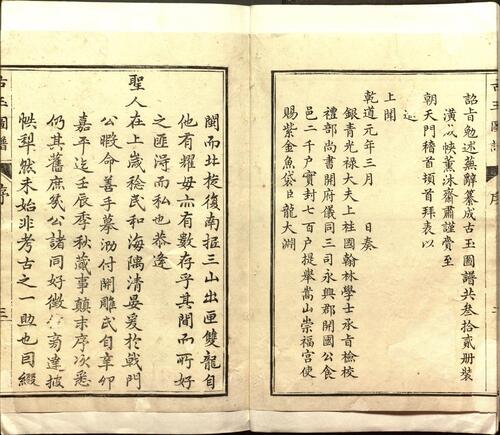 詔旨勉述蕪辭纂成古玉圖譜共叁拾貳册裝
潢成帙薰沐齋肅謹賫至
朝天門稽首頓首拜表以
進
上聞
乾道元年三月 日奏
銀青光禄大夫上柱國翰林學士承旨檢校
禮部尚書開府儀同三司永興郡開國公食
邑二千户實封七百户提舉嵩山崇福宫使
賜紫金魚袋臣龍大淵
古玉圖譜
序
三
閩而北旋復南掋三山出匣雙龍自
他有耀毋亦有數存乎其間而所好
之匪淂而私也恭逢
聖人在上嵗稔民和海隅清晏爰扵戟門
公暇命善手摹泐付開雕氏自辛卯
嘉平迄壬辰季秋蕆事顛末序次悉
仍其舊庶㡬公諸同好微 蒐逮披
帙犂然未始非考古之一助也司綴